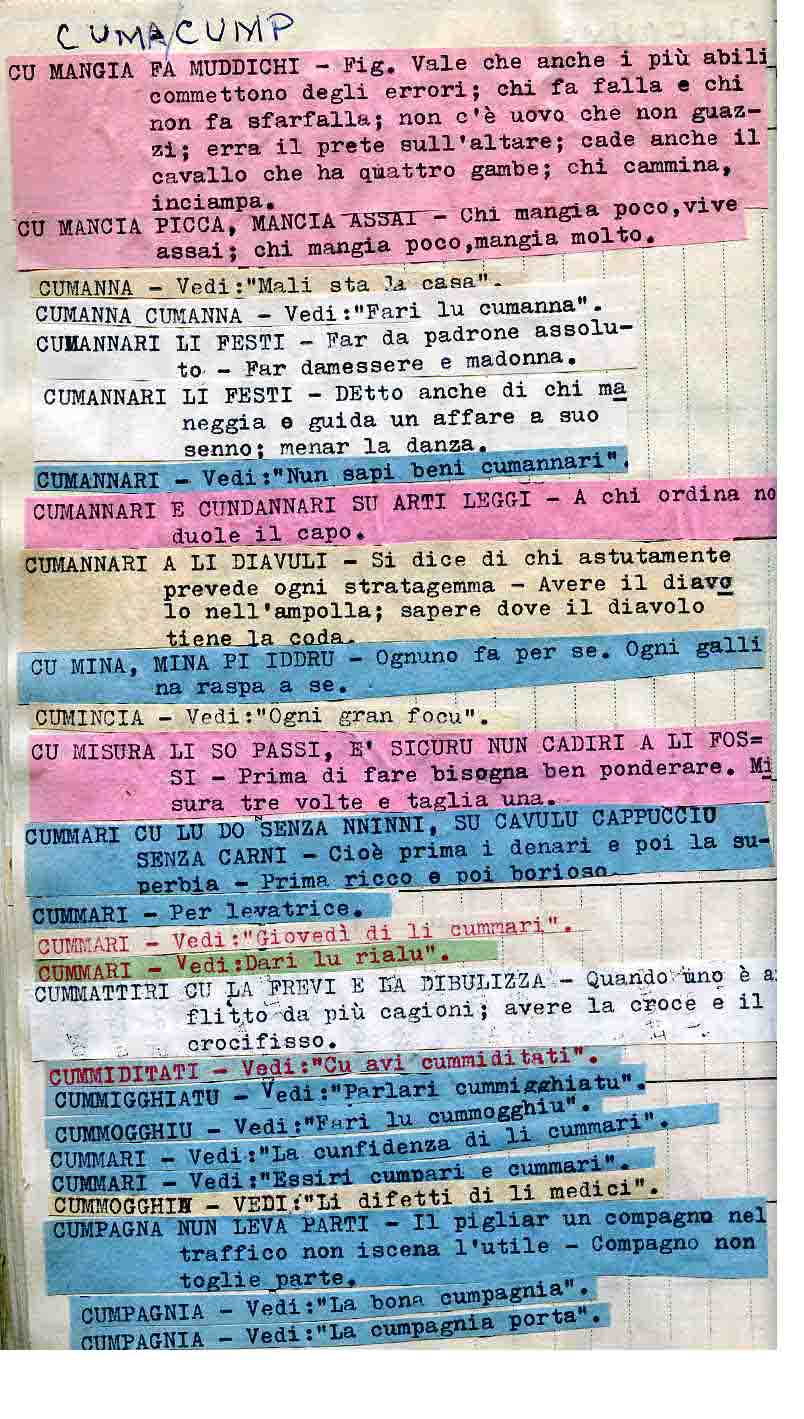 CUMA/CUMP
CU MANGIA FA MUDDICHI - Fig. Vale che anche i più abili
commettono degli errori; chi fa falla e chi
non fa sfarfalla; non c'è uovo che non guaz-
zi; erra il prete sull'altare; cade anche il
cavallo che ha quattro gambe; chi cammina,
inciampa.
CU MANCIA PICCA, MANCIA ASSAI - Chi mangia poco,vive
assai; chi mangia poco,mangia molto.
CUMANNA - Vedi:"Mali sta la casa".
CUMANNA CUMANNA - Vedi:"Fari lu cumanna".
CUMANNARI LI FESTI - Far da padrone assolu-
to - Far damessere e madonna.
CUMANNARI LI FESTI - DEtto anche di chi ma
neggia e guida un affare a suo
senno; menar la danza.
CUMANNARI - Vedi:"Nun sapi beni cumannari".
CUMANNARI E CUNDANNARI SU ARTI LEGGI - A chi ordina no
duole il capo.
CUMANNARI A LI DIAVULI - Si dice di chi astutamente
prevede ogni stratagemma - Avere il diavo
lo nell'ampolla; sapere dove il diavolo
tiene la coda.
CU MINA, MINA PI IDDRU - Ognuno fa per se. Ogni galli
na raspa a se.
CUMINCIA - Vedi:"Ogni gran focu".
CU MISURA LI SO PASSI, E' SICURU NUN CADIRI A LI FOS=
SI - Prima di fare bisogna ben ponderare. Mi
sura tre volte e taglia una.
CUMMARI CU LU DO SENZA NNINNI, SU CAVULU CAPPUCCIU
SENZA CARNI - Cioè prima i denari e poi la su-
perbia - Prima ricco e poi borioso
CUMMARI - Per levatrice.
CUMMARI - Vedi:"Giovedì di li cummari".
CUMMARI - Vedi:Dari lu rialu".
CUMMATTIRI CU LA FREVI E LA DIBULIZZA - Quando uno è a
flitto da più cagioni; avere la croce e il
crocifisso.
CUMMIDITATI - Vedi:"Cu avi cummiditati".
CUMMIGGHIATU - Vedi:"Parlari cummigghiatu".
CUMMOGGHIU - Vedi:"Fari lu cummogghiu".
CUMMARI - Vedi:"La cunfidenza di li cummari".
CUMMARI - Vedi:"Essiri cumpari e cummari".
CUMMOGGHIN - VEDI:"Li difetti di li medici".
CUMPAGNA NUN LEVA PARTI - Il pigliar un compagno nel
traffico non iscena l'utile - Compagno non
toglie parte.
CUMPAGNIA - Vedi:"La bona cumpagnia".
CUMPAGNIA - Vedi:"La cumpagnia porta".